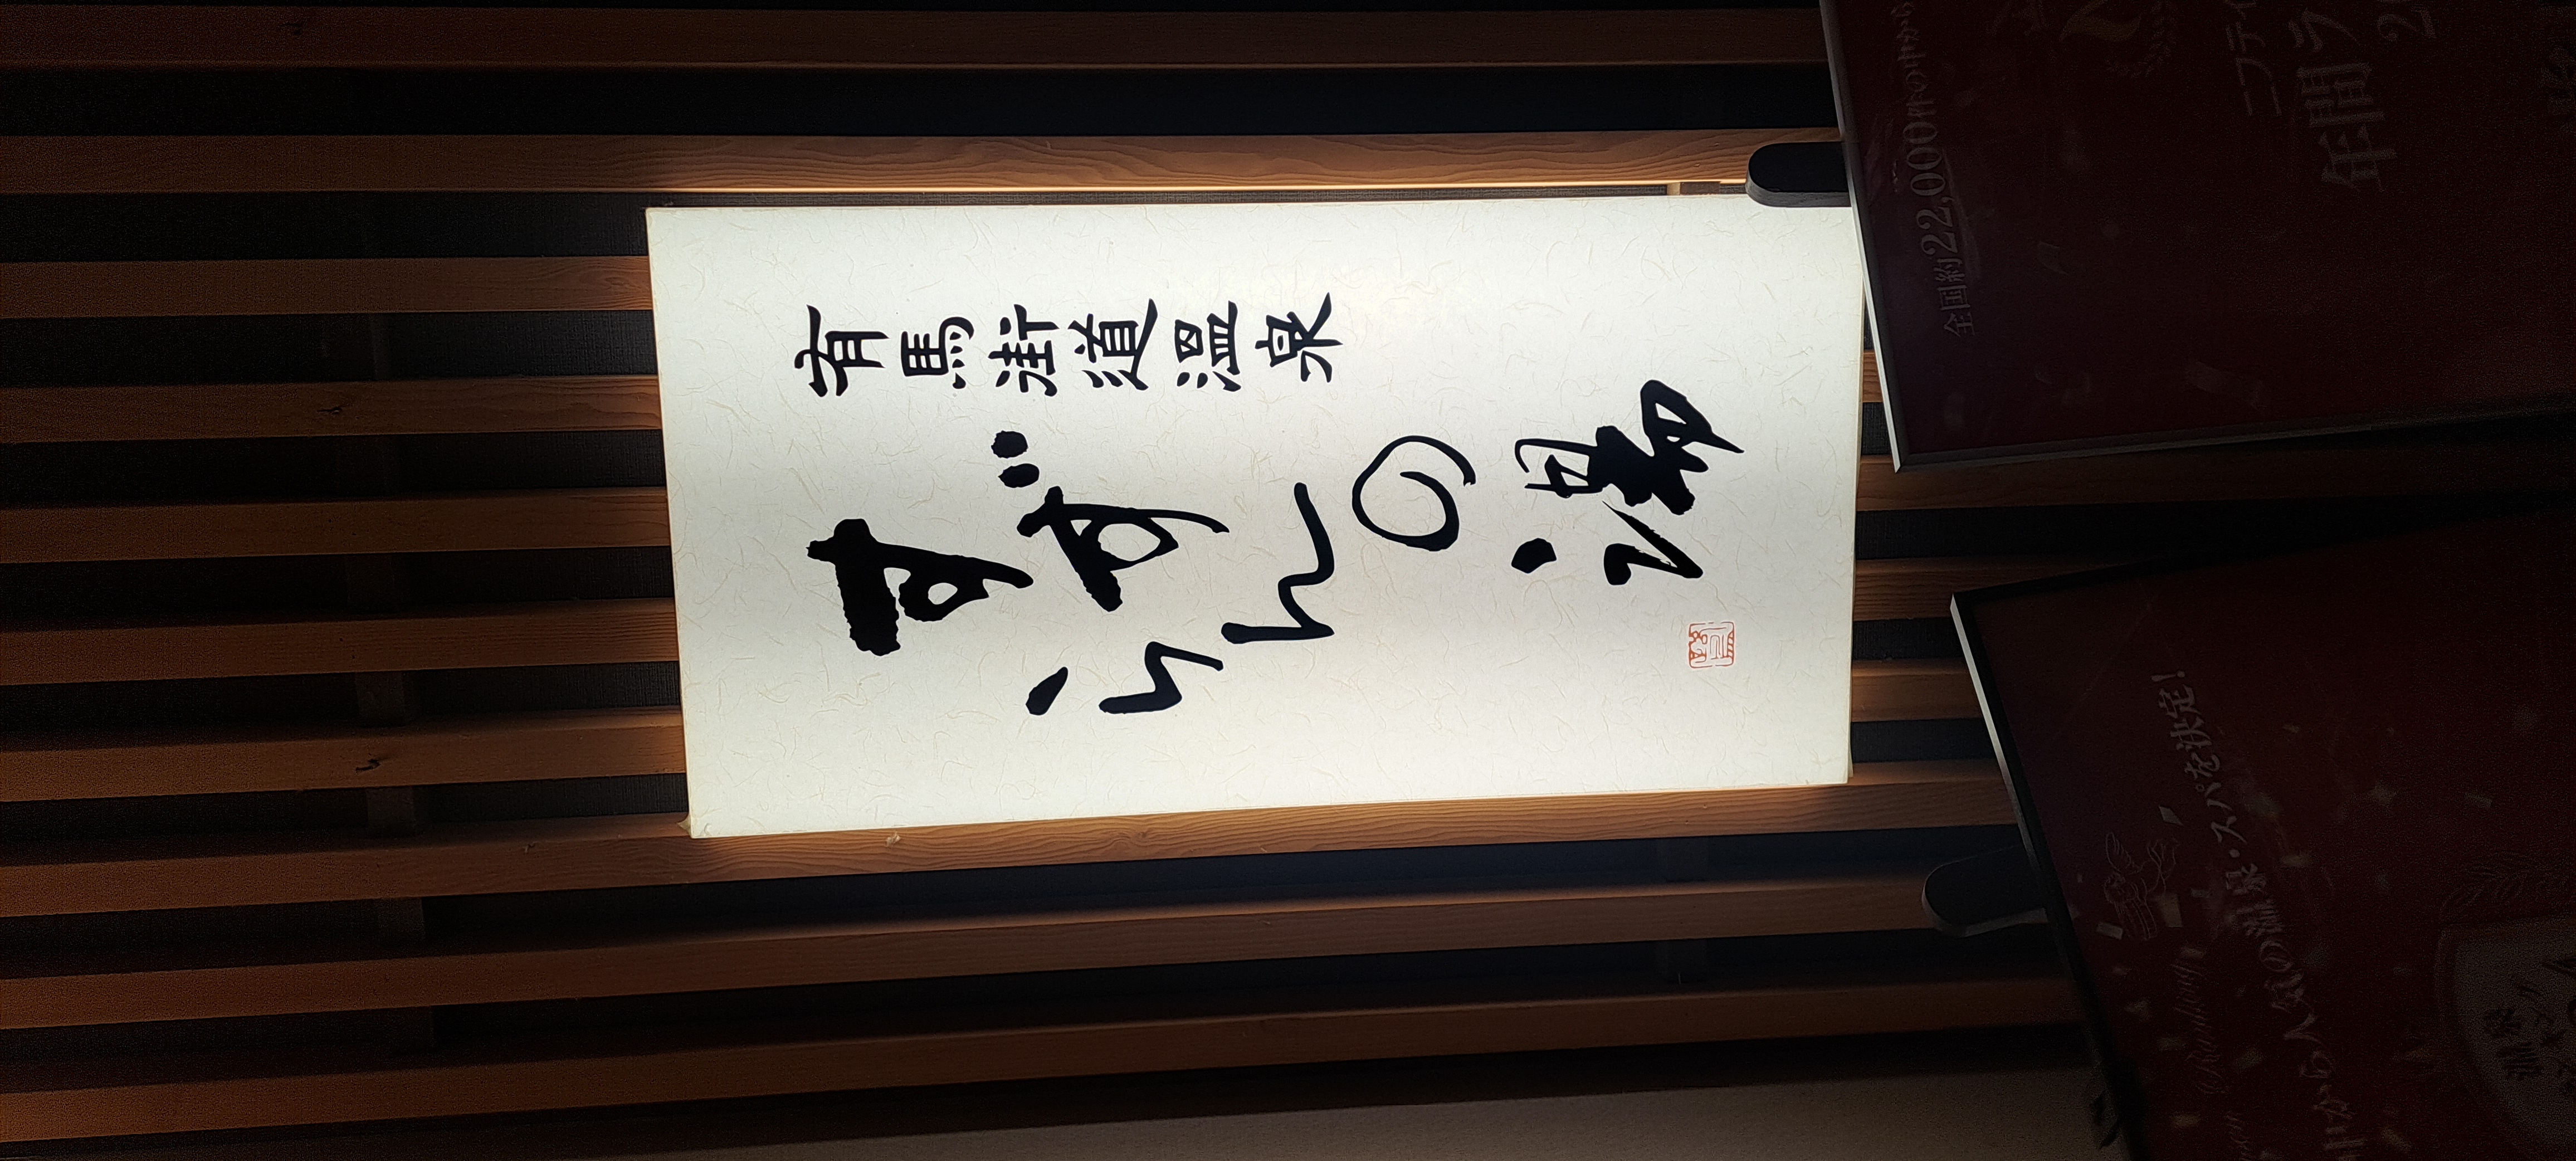 有馬街道温泉
すずらんの湯
全国約22,000件の中から
ニフティ
年間ラ
から人気の温泉・スパを決定!
Ranking